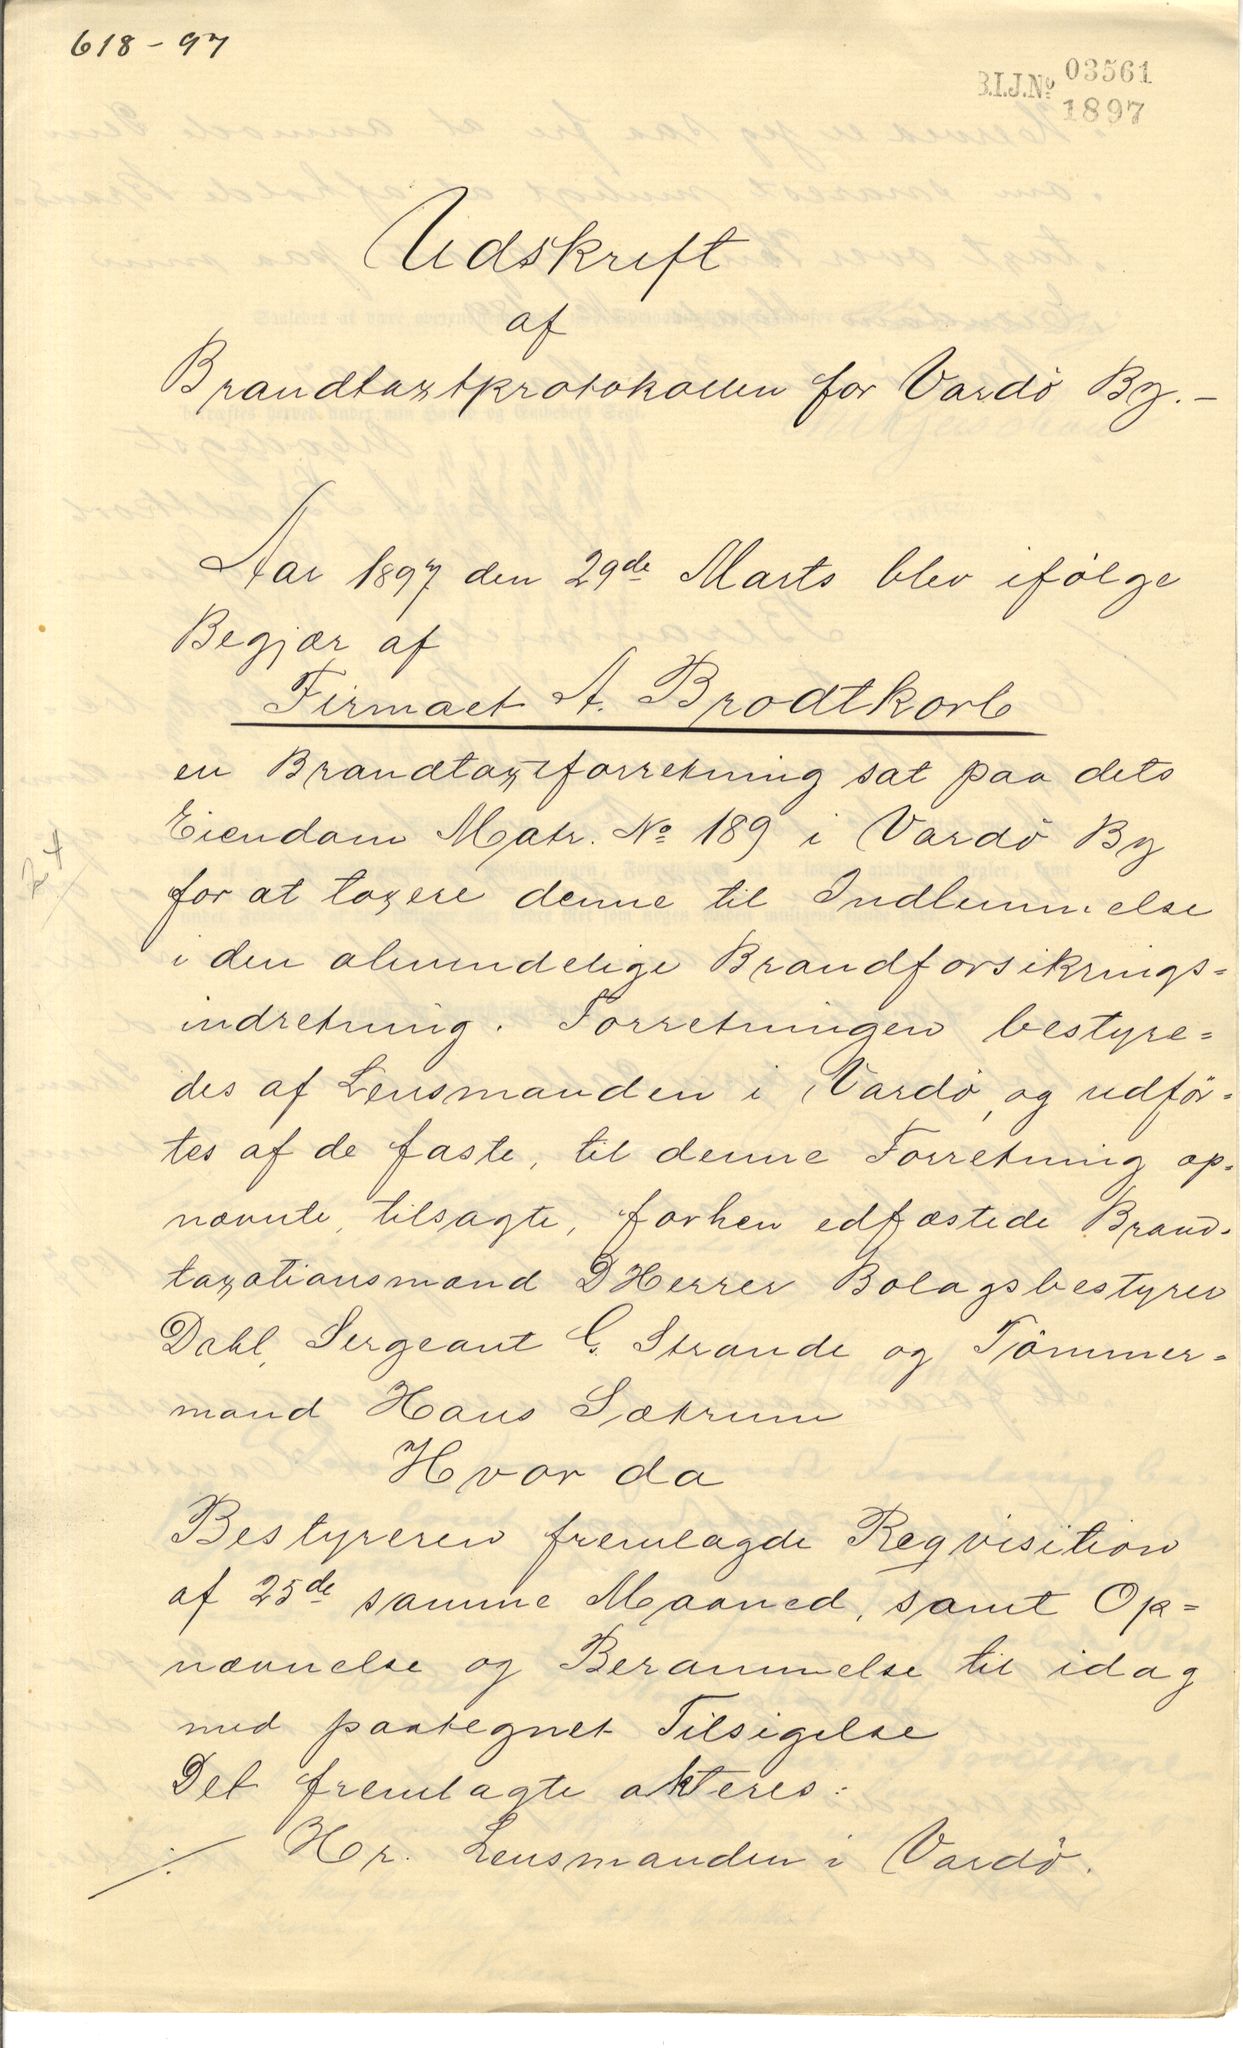 618 - 97
B.I.J.No 03561
1897
Udskrift
af
Brandtaxtkrotokollen for Vardö By. -
Aar 1897 den 29de Marts blev ifölge
Begjær af
Firmaet A. Brodtkorb
en Brandtaxtforretning sat paa dets
Eiendom Matr. No 189 i Vardö By
for at taxere denne til Indlemmelse
i den almindelige Brandforsikrings=
indretning. Forretningen bestyre=
des af Lensmanden i Vardö, og udför=
tes af de faste, til denne Forretning op=
nævnte, tilsagte, forhen edfæstede Brand=
taxationsmænd DHerrer Bolagsbestyrer
Dahl, Sergeant C. Strande og Tömmer=
mand Hans Sætrum
Hvor da
Bestyreren fremlagde Reqvisition
af 25de samme Maaned, samt Op=
nævnelse og Berammelse til idag
med paategnet Tilsigelse
Det fremlagte akteres:
Hr. Lensmanden i Vardö.